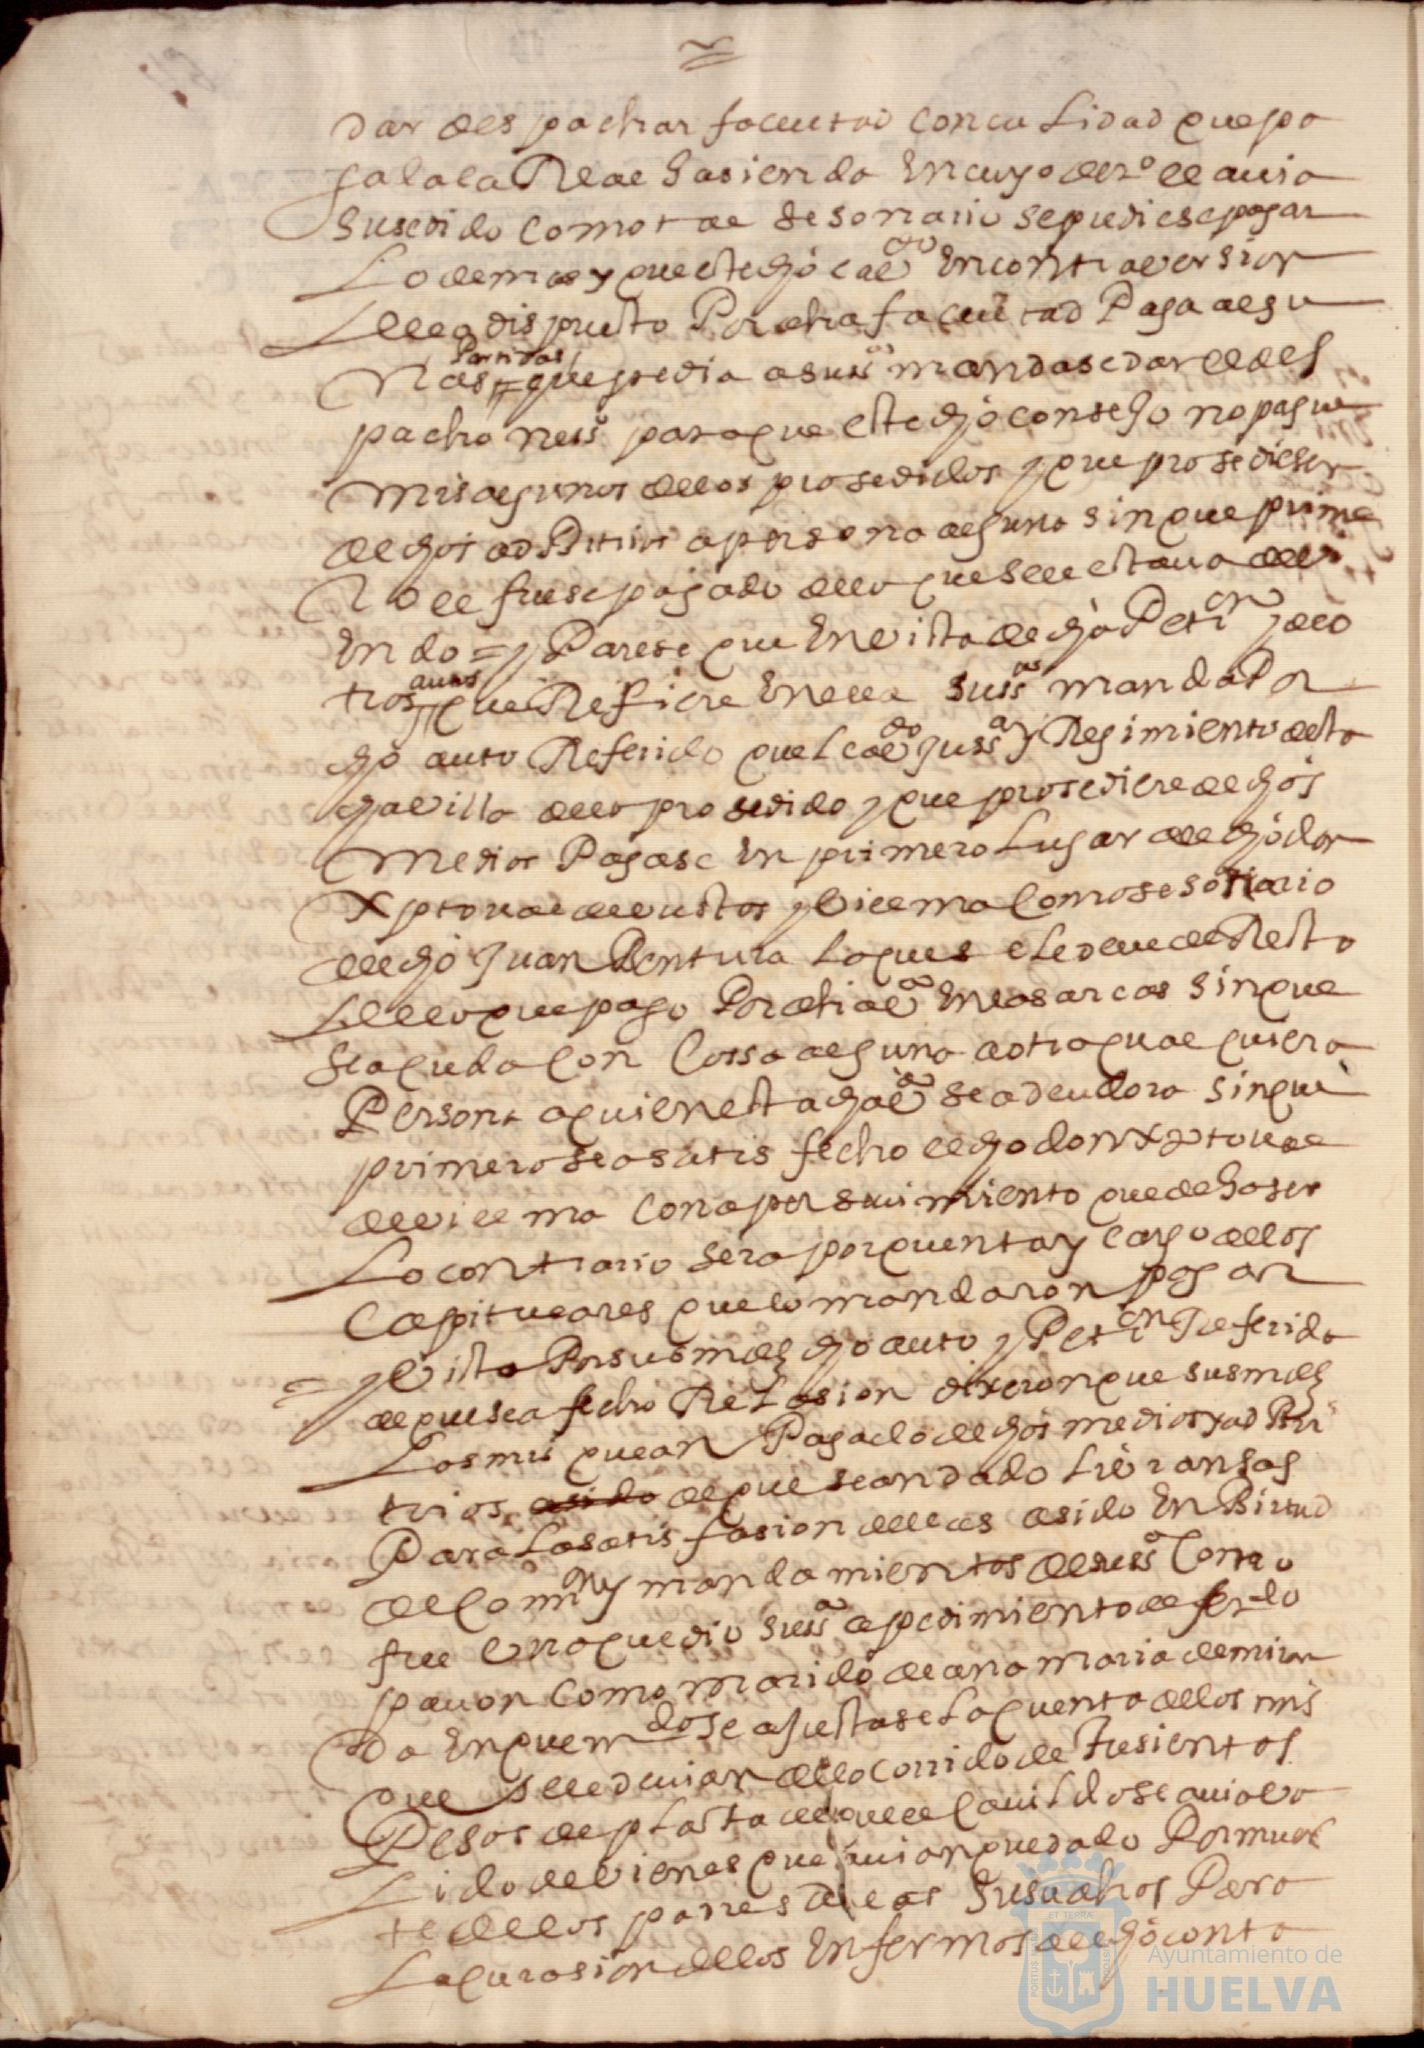 dar despachar facultad con calidad que pa
gala la Real hasienda en cuyo der.o le auia
susedido como tal sesonario se pudiese pagar
Lo demas y que este dho cau.do en contrauersion
de lo dispuesto Por dha facultad Paga algu
nas Partidas que pedia a su ss.a mandase dar el des
pacho ness.o para que este dho consejo no pague
mrs algunos de los prosedidos y que prosediesen
de dhos adbitrios a persona alguna sin que prime
Ro le fuese pagado de lo que se le estaua deui
endo = y Parese que en vista de dha Peti.on y de o
tros autos que Refiere en ella su ss.a manda Por
dho auto Referido que el cau.do Juss.a y Regimiento desta
dha villa de lo prosedido y que prosediere de dhos
medios Pagase en primero Lugar a el dho don
Xptoual de bustos y Villema como sesonario
de dho Juan Bentura lo que se le deue de Resto
de lo que pago Por dha v.a en las arcas sin que
se acuda con Cossa alguna a otra qual quiera
Persona a quien esta dha v.a sea deudora sin que
primero sea satisfecho el dho don Xptoual
de villema con apersiuimiento que de haser
Lo contrario sera por quenta y cargo de los
Capitulares que lo mandaron pagar
= y Vista Por sus mds dho auto y Peti.on Referida
de que sea fecho Relasion dixeron que sus mds
Los mrs que an Pagado de dhos medios y adbi
trios de que se an dado Libransas
Para la satisfasion de ellas a sido en Birtud
de Comi.on y mandamientos de su ss.a Como
fue en que dio su ss.a a pedimiento de fer.do
pauon como marido de ana maria de miran
da en que m.dose ajustase la quenta de los mrs
que se le deuian de lo corrido de Tresientos
Pesos de plata de que el Cauildo se auia va
Lido de vienes que auian quedado Por muer
te de los padres de las susodhas Para
La curasion de los enfermos de el dho conta
Ayuntamiento de
HUELVA